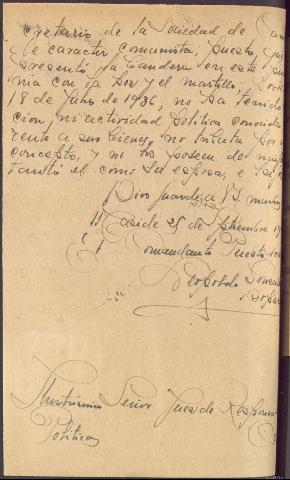 cretario de la Sociedad de
de caracter Comunista, puesto
presentó la bandera en este
nia con la hoz y el martillo.
18 de Julio de 1936, no ha tenido
cion, ni actividad politica conocida
rente a sus bienes, no tributa por
concepto, y no los posee de
tanto él como su esposa, e
Dios guarde a V.S. muchos
25 de Septiembre 19
El Comandante Puesto
Leopoldo
Ilustrisimo Señor Juez de Respons
Politicas